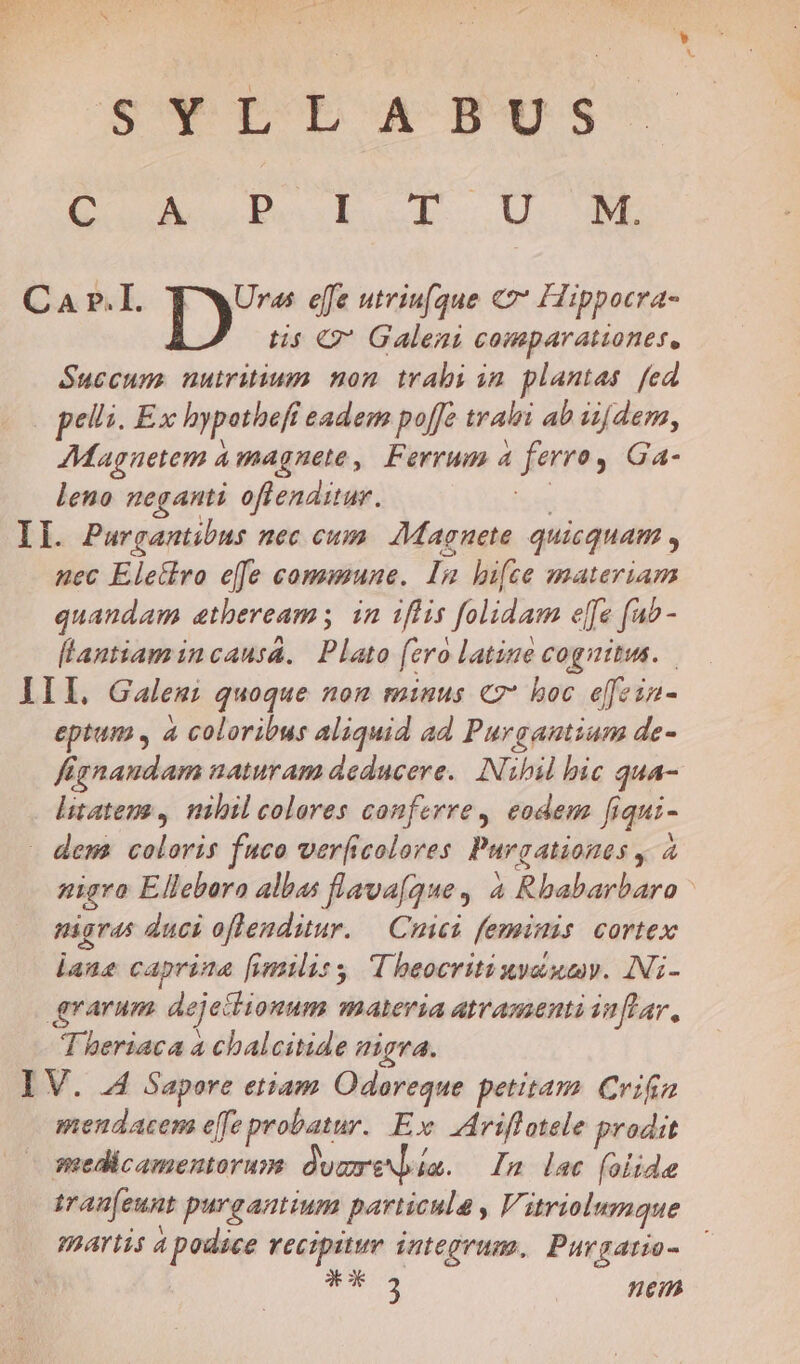 SYLLABUS
CAPITUM.
CAP.I. DUras eſſe utriuſque & Hippocra-
tis & Galeni comparationes.
Succum nutritium non trahi in plantas ſed
pelli. Ex hypotheſi eadem poſſe trahi ab iiſdem,
Magnetem à magnete, Ferrum à ferro, Ga-
leno neganti oſtenditur.
II. Purgantibus nec cum Magnete quicquam,
nec Electro eſſe commune. In hiſce materiam
quandam ætheream; in iſtis ſolidam eſſe ſub-
ſtantiam in causâ. Plato ſerò latinè cognitus.
III. Galeni quoque non minus & hoc eſſe in-
eptum, à coloribus aliquid ad Purgantium de-
ſignandam naturam deducere. Nihil hic qua-
litatem, nihil colores conferre, eodem ſiqui-
dem coloris fuco verſicolores Purgationes, à
nigro Elleboro albas flavaſque, à Rhabarbaro
nigras duci oſtenditur. Cnici ſeminis cortex
lanæ caprinæ ſimilis; Theocriti κνάκων. Ni-
grarum dejectionum materia atramenti inſtar.
Theriaca à chalcitide nigra.
IV. A Sapore etiam Odoreque petitam Criſin
mendacem eſſe probatur. Ex Ariſtotele prodit
medicamentorum δυσπεψία. In lac ſolidæ
tranſeunt purgantium particulæ, Vitriolumque
martis à podice recipitur integrum. Purgatio-
** 3
nem